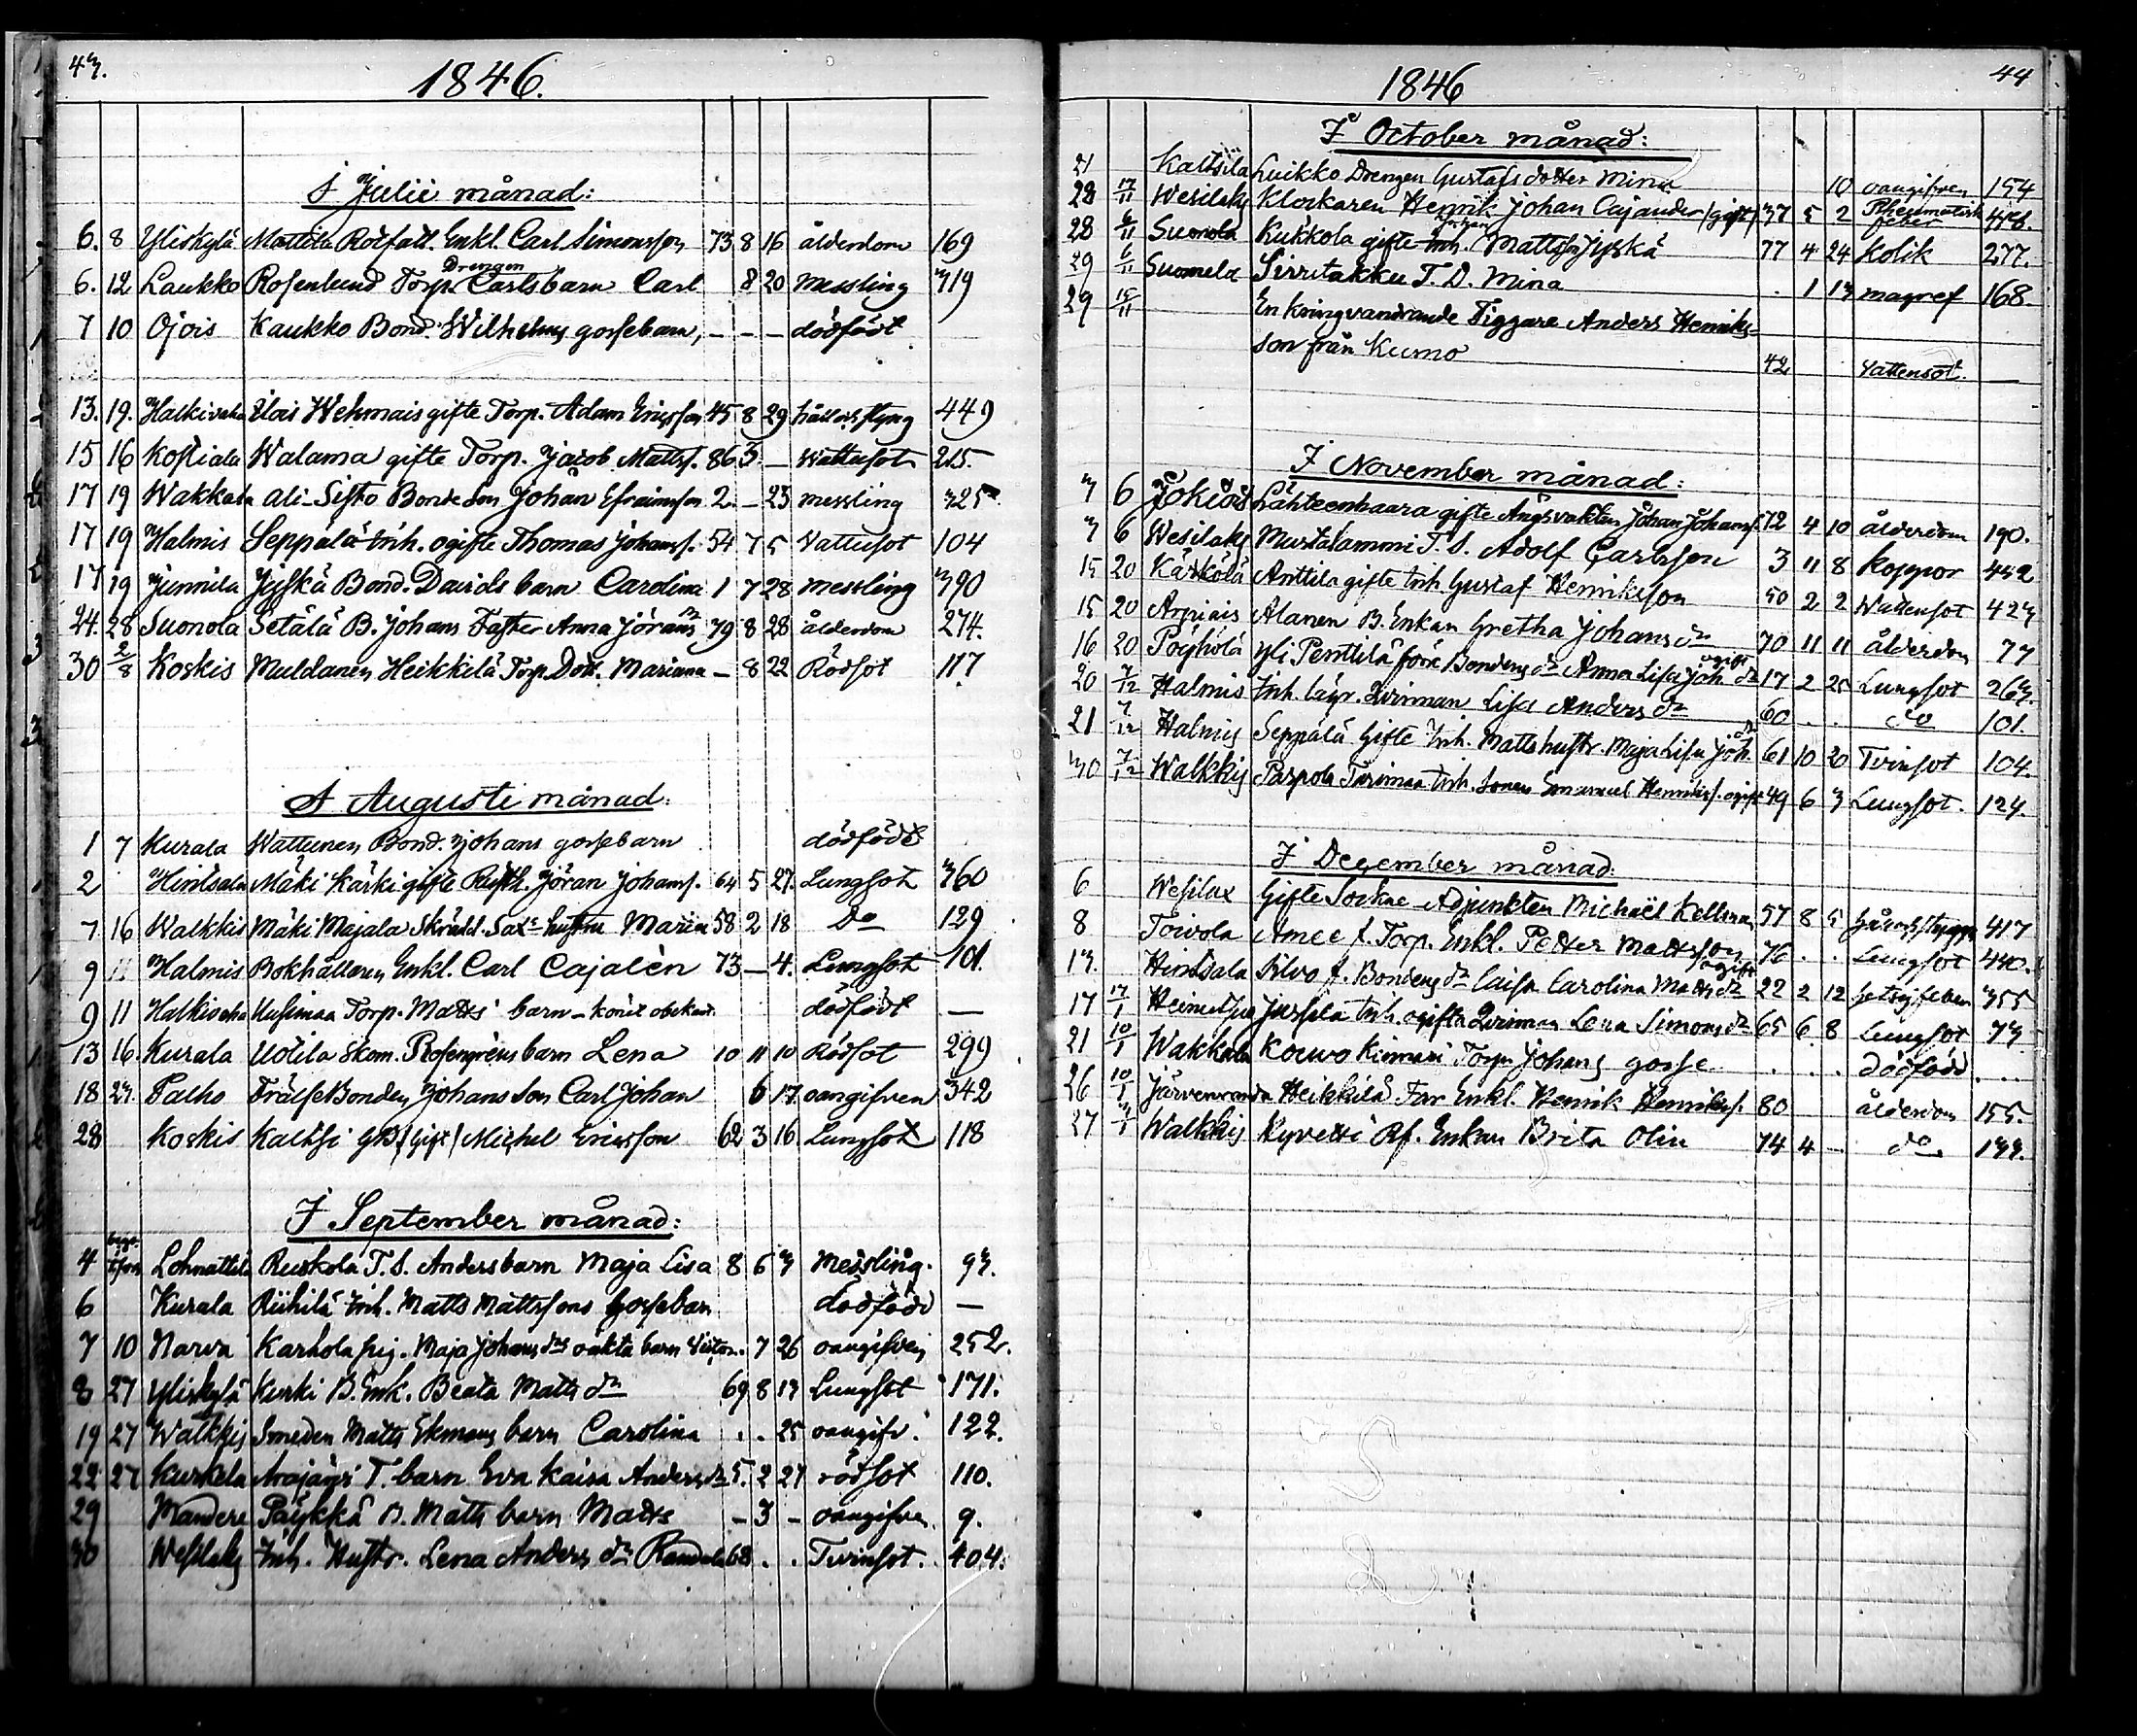 43.
1846.
I Julii månad:
6. 8 Yliskylä Mattila Rotfatt. Enkl. Carl Simonsson 73 8 16 ålderdom 169
Drengen
6. 12 Laukko Rosenlund Torp. Carls barn Carl 8 20 Messling 319
7 10 Ojois Kaukko Bond. Wilhelms gossebarn, - - - dödfödt
13. 19. Halkivaha Ilois Wehmais gifte Torp. Adam Ericsson 45 8 29 håll och styng 449
15 16 Kostiala Walama gifte Torp. Jacob Mattss. 86 3. - Wattusot 215.
17 19 Wakkala Ali-Sisto Bonde Son Johan Efraimsson 2. - 23 messling 325
17 19 Halmis Seppälä Inh. ogifte Thomas Johanss. 54 7 5 Vattusot 104
17 19 Junnila Jyskä Bond. Davids barn Carolina 1 7 28 messling 390
24. 28 Suonola Setälä B. Johans Faster Anna Jörans dr 79 8 28 ålderdom 274.
30 2/8 Koskis Muldanen Heikkilä Torp. Dott. Mariana - 8 22 Rödsot 117
I Augusti månad:
1 7 Kurala Wattunen Bond. Johans gossebarn dödfödt
2 Hindsala Mäki Kärki gifte Rusth. Jöran Johanss. 64 5 27. Lungsot 360
7 16 Walkkis Mäki Majala Skrädd. Sax's hustru Maria 58 2 18 Do 129
9 11 Halmis Bokhållaren Enkl. Carl Cajalèn 73 - 4. Lungsot 101.
9 11 Halkivaha Uusimaa Torp. Matts' barn - könet obekant. dödfödt -
13 16. Kurala Uotila Skom. Rosengrèns barn Lena 10 11 10 Rödsot 299
18 23. Palho FrälseBonden Johans Son Carl Johan 6 17. oangifven 342
28 Koskis Kaltsi GB /gift/ Michel Ericsson 62 3 16. Lungsot 118
I September månad:
4 Lohnattila Ruskola T. S. Anders barn Maja Lisa 8 6 3 Messling. 93.
6 Kurala Riihilä Inh. Matts Mattssons Gossebarn dödfödd -
7 10 Narva Karhola pig. Maja Johans drs oäkta barn Victor. 7 26 oangifven 252.
8 27 Yliskylä Kurki B. Enk. Beata Matts dr 69 8 13 Lungsot 171.
19 27 Walkkis Smeden Matts Ekmans barn Carolina . . 25 oangifv. 122.
22 27 Kurkela Arajärvi T. barn Eva Kaisa Anders dr 5. 2 27 rödsot 110.
29 Mandere Päykkä B. Matts barn Matts - 3 - oangifven 9.
30 Wesilaks Inh. Hustr. Lena Anders dr Randala 68 . . Tvinsot. 404.
44
1846
I October månad:
21 Kaltsila Luikko Drengen Gustafs dotter Mina 10 oangifven 154
28 17/11 Wesilaks Klockaren Henrik Johan Cajander /gift/ 37 5 2 Rheumatisk feber 458.
28 6/11 Suonola Kukkola gifte Inh. Mattss Jyskä 77 4 24 Kolik 277.
29 6/11 Suomela Sirritakku T. D. Mina . 1 13 magref 168.
29 15/11 En kringvandrande Tiggare Anders Henriks-
son från Kumo 42 Vattensot. -
I November månad:
3 6 Jokiois Lähteenhaara gifte Ängsvakten Johan Johanss. 72 4 10 ålderdom 190.
3 6 Wesilaks Mustalammi T. S. Adolf Carlsson 3 11 8 koppor 452
15 20 Kärkölä Anttila gifte Inh. Gustaf Henriksson 50 2 2 Wattusot 423
15 20 Arpiais Alanen B. Enkan Gretha Johans dr 70 11 11 ålderdom 77
ogift
16 20 Pöyhölä Yli Penttilä före Bondens dr Anna Lisa Joh. dr 17 2 25 Lungsot 263.
20 7/12 Halmis Inh. lägr. Qvinnan Lisa Anders dr 60 . . do 101.
21 7/12 Halmis Seppälä Gifte Inh. Matts hustr. Maja Lisa Joh. dr 61 10 20 Tvinsot 104.
30 7/12 Walkkis Parpola Inh. Sonen Emanuel Henrikss. ogift 49 6 3 Lungsot. 124.
I December månad:
6 Wesilax Gifte Sockne-Adjunkten Michaël Kellman 57 8 5 417
8 Toivola Amee f. Torp. Enkl. Petter Mattsson 76 . . Lungsot 440.
ogift
13. Hindsala Silvo f. Bondens dr Caisa Carolina Matts dr 22 2 12 hetsig feber 355
17 17/1 Jussila Inh. ogifta Qvinnan Lena Simons dr 65 6. 8 Lungsot 73
21 10/1 Wakkala Kouvo Torpn Johans gosse . . . dödfödd ...
26 10/1 Järvenranda Heikkilä Far Enkl. Henrik Henrikss. 80 ålderdom 155.
27 Walkkis Kyvetti Rf. Enkan Brita Olin 74 4 - do 133.